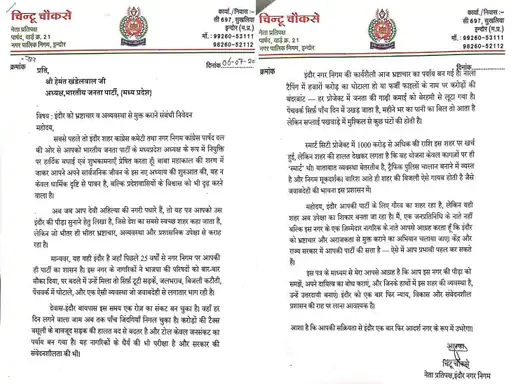 चिन्टू चौकसे
नेता प्रतिपक्ष
पार्षद, वार्ड क्र. 21
नगर पालिक निगम, इन्दौर
कार्या./निवास :-
सी 697, सुखलिया
इन्दौर (म.प्र.)
मो.: 99260-53111
98260-52112
प्रति,
श्री हेमंत खंडेलवाल जी
अध्यक्ष, भारतीय जनता पार्टी, (मध्य प्रदेश)
विषय :- इंदौर को भ्रष्टाचार व अव्यवस्था से मुक्त कराने संबंधी निवेदन
महोदय,
सबसे पहले तो इंदौर शहर कांग्रेस कमेटी तथा नगर निगम कांग्रेस पार्षद दल
की ओर से आपको भारतीय जनता पार्टी के मध्यप्रदेश अध्यक्ष के रूप में नियुक्ति
पर हार्दिक बधाई एवं शुभकामनाएँ प्रेषित करता हूँ। बाबा महाकाल की शरण में
जाकर आपने अपने सार्वजनिक जीवन के इस नए अध्याय की शुरुआत की, यह न
केवल धार्मिक दृष्टि से पावन है, बल्कि प्रदेशवासियों के विश्वास को भी दृढ़ करने
वाला है।
अब जब आप देवी अहिल्या की नगरी पधारे हैं, तो यह पत्र आपको उस
इंदौर की पीड़ा सुनाने हेतु लिखा है, जिसे देश का सबसे स्वच्छ शहर कहा जाता है,
लेकिन जो भीतर ही भीतर भ्रष्टाचार, अव्यवस्था और प्रशासनिक उपेक्षा से कराह
रहा है।
मान्यवर, यह वही इंदौर है जहाँ पिछले 25 वर्षों से नगर निगम पर आपकी
ही पार्टी का शासन है। इस नगर के नागरिकों ने भाजपा की परिषदों को बार-बार
मौका दिया, पर बदले में उन्हें मिला तो सिर्फ टूटी सड़कें, जलभराव, बिजली कटौती,
पेंचवर्क में घोटाले, और एक ऐसी व्यवस्था जो जवाबदेही से लगातार भाग रही है।
देवास-इंदौर बायपास इस समय एक रोज़ का संकट बन चुका है। वहाँ हर
दिन लगने वाला जाम अब तक पाँच जिंदगियाँ निगल चुका है। करोड़ों की टैक्स
वसूली के बावजूद सड़क की हालत बद से बदतर है और टोल केवल जनसंकट का
पर्याय बन गया है। यह नागरिकों के धैर्य की भी परीक्षा है और सरकार की
संवेदनशीलता की भी।
चिन्टू चौकसे
नेता प्रतिपक्ष
पार्षद, वार्ड क्र. 21
नगर पालिक निगम, इन्दौर
कार्या./निवास :-
सी 697, सुखलिया
इन्दौर (म.प्र.)
मो.: 99260-53111
98260-52112
इंदौर नगर निगम की कार्यशैली आज भ्रष्टाचार का पर्याय बन गई है। नाला
टैपिंग में हजारों करोड़ का घोटाला हो या फर्जी फाइलों के नाम पर करोड़ों की
बंदरबांट — हर प्रोजेक्ट में जनता की गाढ़ी कमाई को बेरहमी से लूटा गया है।
पेंचवर्क सिर्फ पाँच दिन में उखड़ जाता है, महीने भर का पानी का बिल तो आता है
लेकिन सप्लाई पखवाड़े में मुश्किल से कुछ घंटों की होती है।
स्मार्ट सिटी प्रोजेक्ट में 1000 करोड़ से अधिक की राशि इस शहर पर खर्च
हुई, लेकिन शहर की हालत देखकर लगता है कि यह योजना केवल कागज़ों पर ही
'स्मार्ट' थी। यातायात व्यवस्था बेतरतीब है, ट्रैफिक पुलिस चालान बनाने में व्यस्त है
और निगम मूकदर्शक। बारिश आते ही शहर की बिजली ऐसे गायब होती है जैसे
जवाबदेही की भावना इस प्रशासन में।
महोदय, इंदौर आपकी पार्टी के लिए गौरव का शहर रहा है, लेकिन यही
शहर अब उपेक्षा का शिकार बनता जा रहा है। मैं, एक जनप्रतिनिधि के नाते नहीं
बल्कि इस नगर के एक जिम्मेदार नागरिक के नाते आपसे आग्रह करता हूँ कि इंदौर
को भ्रष्टाचार और अराजकता से मुक्त कराने का अभियान चलाया जाए। केंद्र और
राज्य सरकार में आपकी पार्टी की सत्ता है — ऐसे में आप प्रभावी पहल कर सकते
हैं।
इस पत्र के माध्यम से मेरा आपसे आग्रह है कि आप इस नगर की पीड़ा को
समझें, अपने दायित्व का बोध कराएं, और जिनके हाथों में इस शहर की व्यवस्था है,
उन्हें उत्तरदायी बनाएं। इंदौर को एक बार फिर न्याय, विकास और संवेदनशील
प्रशासन की राह पर लाना आवश्यक है।
आशा है कि आपकी सक्रियता से इंदौर एक बार फिर आदर्श नगर के रूप में उभरेगा।
चिंटू चौकसे
नेता प्रतिपक्ष, इंदौर नगर निगम